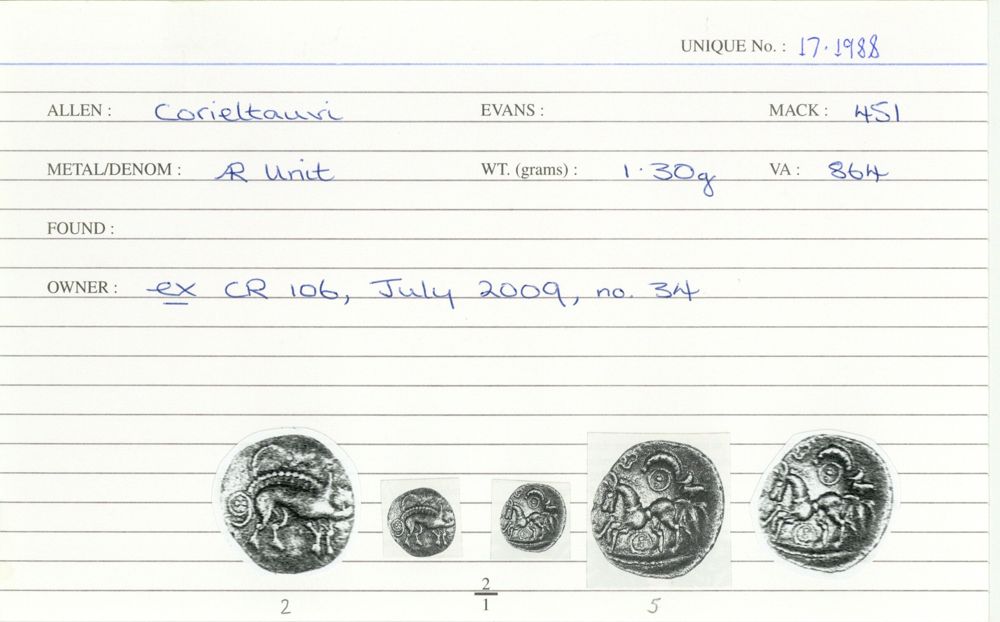 UNIQUE No. : 17.1988
ALLEN : Corieltauvi EVANS : MACK : 451
METAL/DENOM : AR Unit WT. (grams) : 1.30g VA : 864
FOUND :
OWNER : ex CR 106, July 2009, no. 34
2 2/1 5